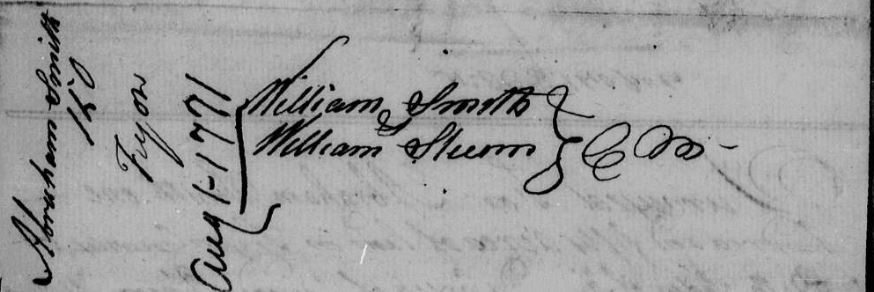 Abraham Smith
150
Tryon
Aug 1-1771
William Smith
&
William Sluom